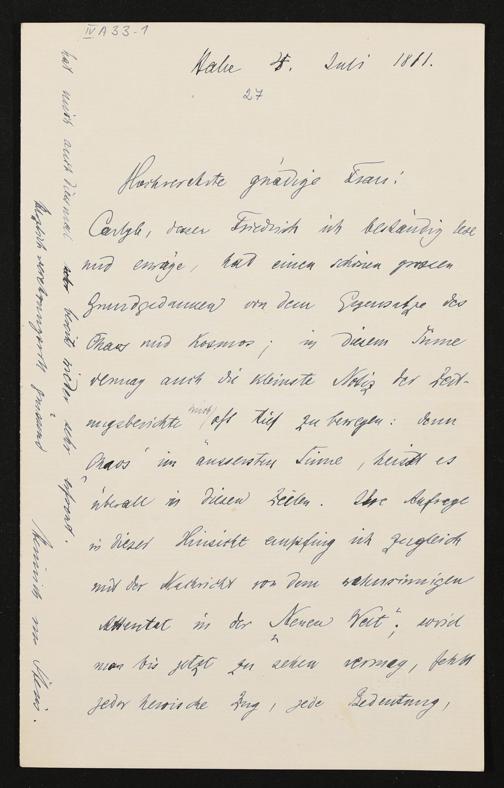 IV A 33-1
Halle 4. Juli 1881.
27
Hochverehrte gnädige Frau!
Carlyle, dessen Friedrich ich beständig lese
und erwäge, hat einen schönen grossen
Grundgedanken von dem Gegensatze des
Chaos und Kosmos; in diesem Sinne
vermag auch die kleinste Notiz der Zeit-
ungsberichte mich oft tief zu bewegen: denn
„Chaos" im äussersten Sinne, heisst es
überall in diesen Zeilen. Ihre Anfrage
in dieser Hinsicht empfing ich zugleich
mit der Nachricht von dem wahnsinnigen
Attentat in der „Neuen Welt"; soviel
man bis jetzt zu sehen vermag, fehlt
jeder heroische Zug, jede Bedeutung,
hat mich auch diesmal wieder sehr erfreut.
verehrungsvoll grüssend
Heinrich von Stein.